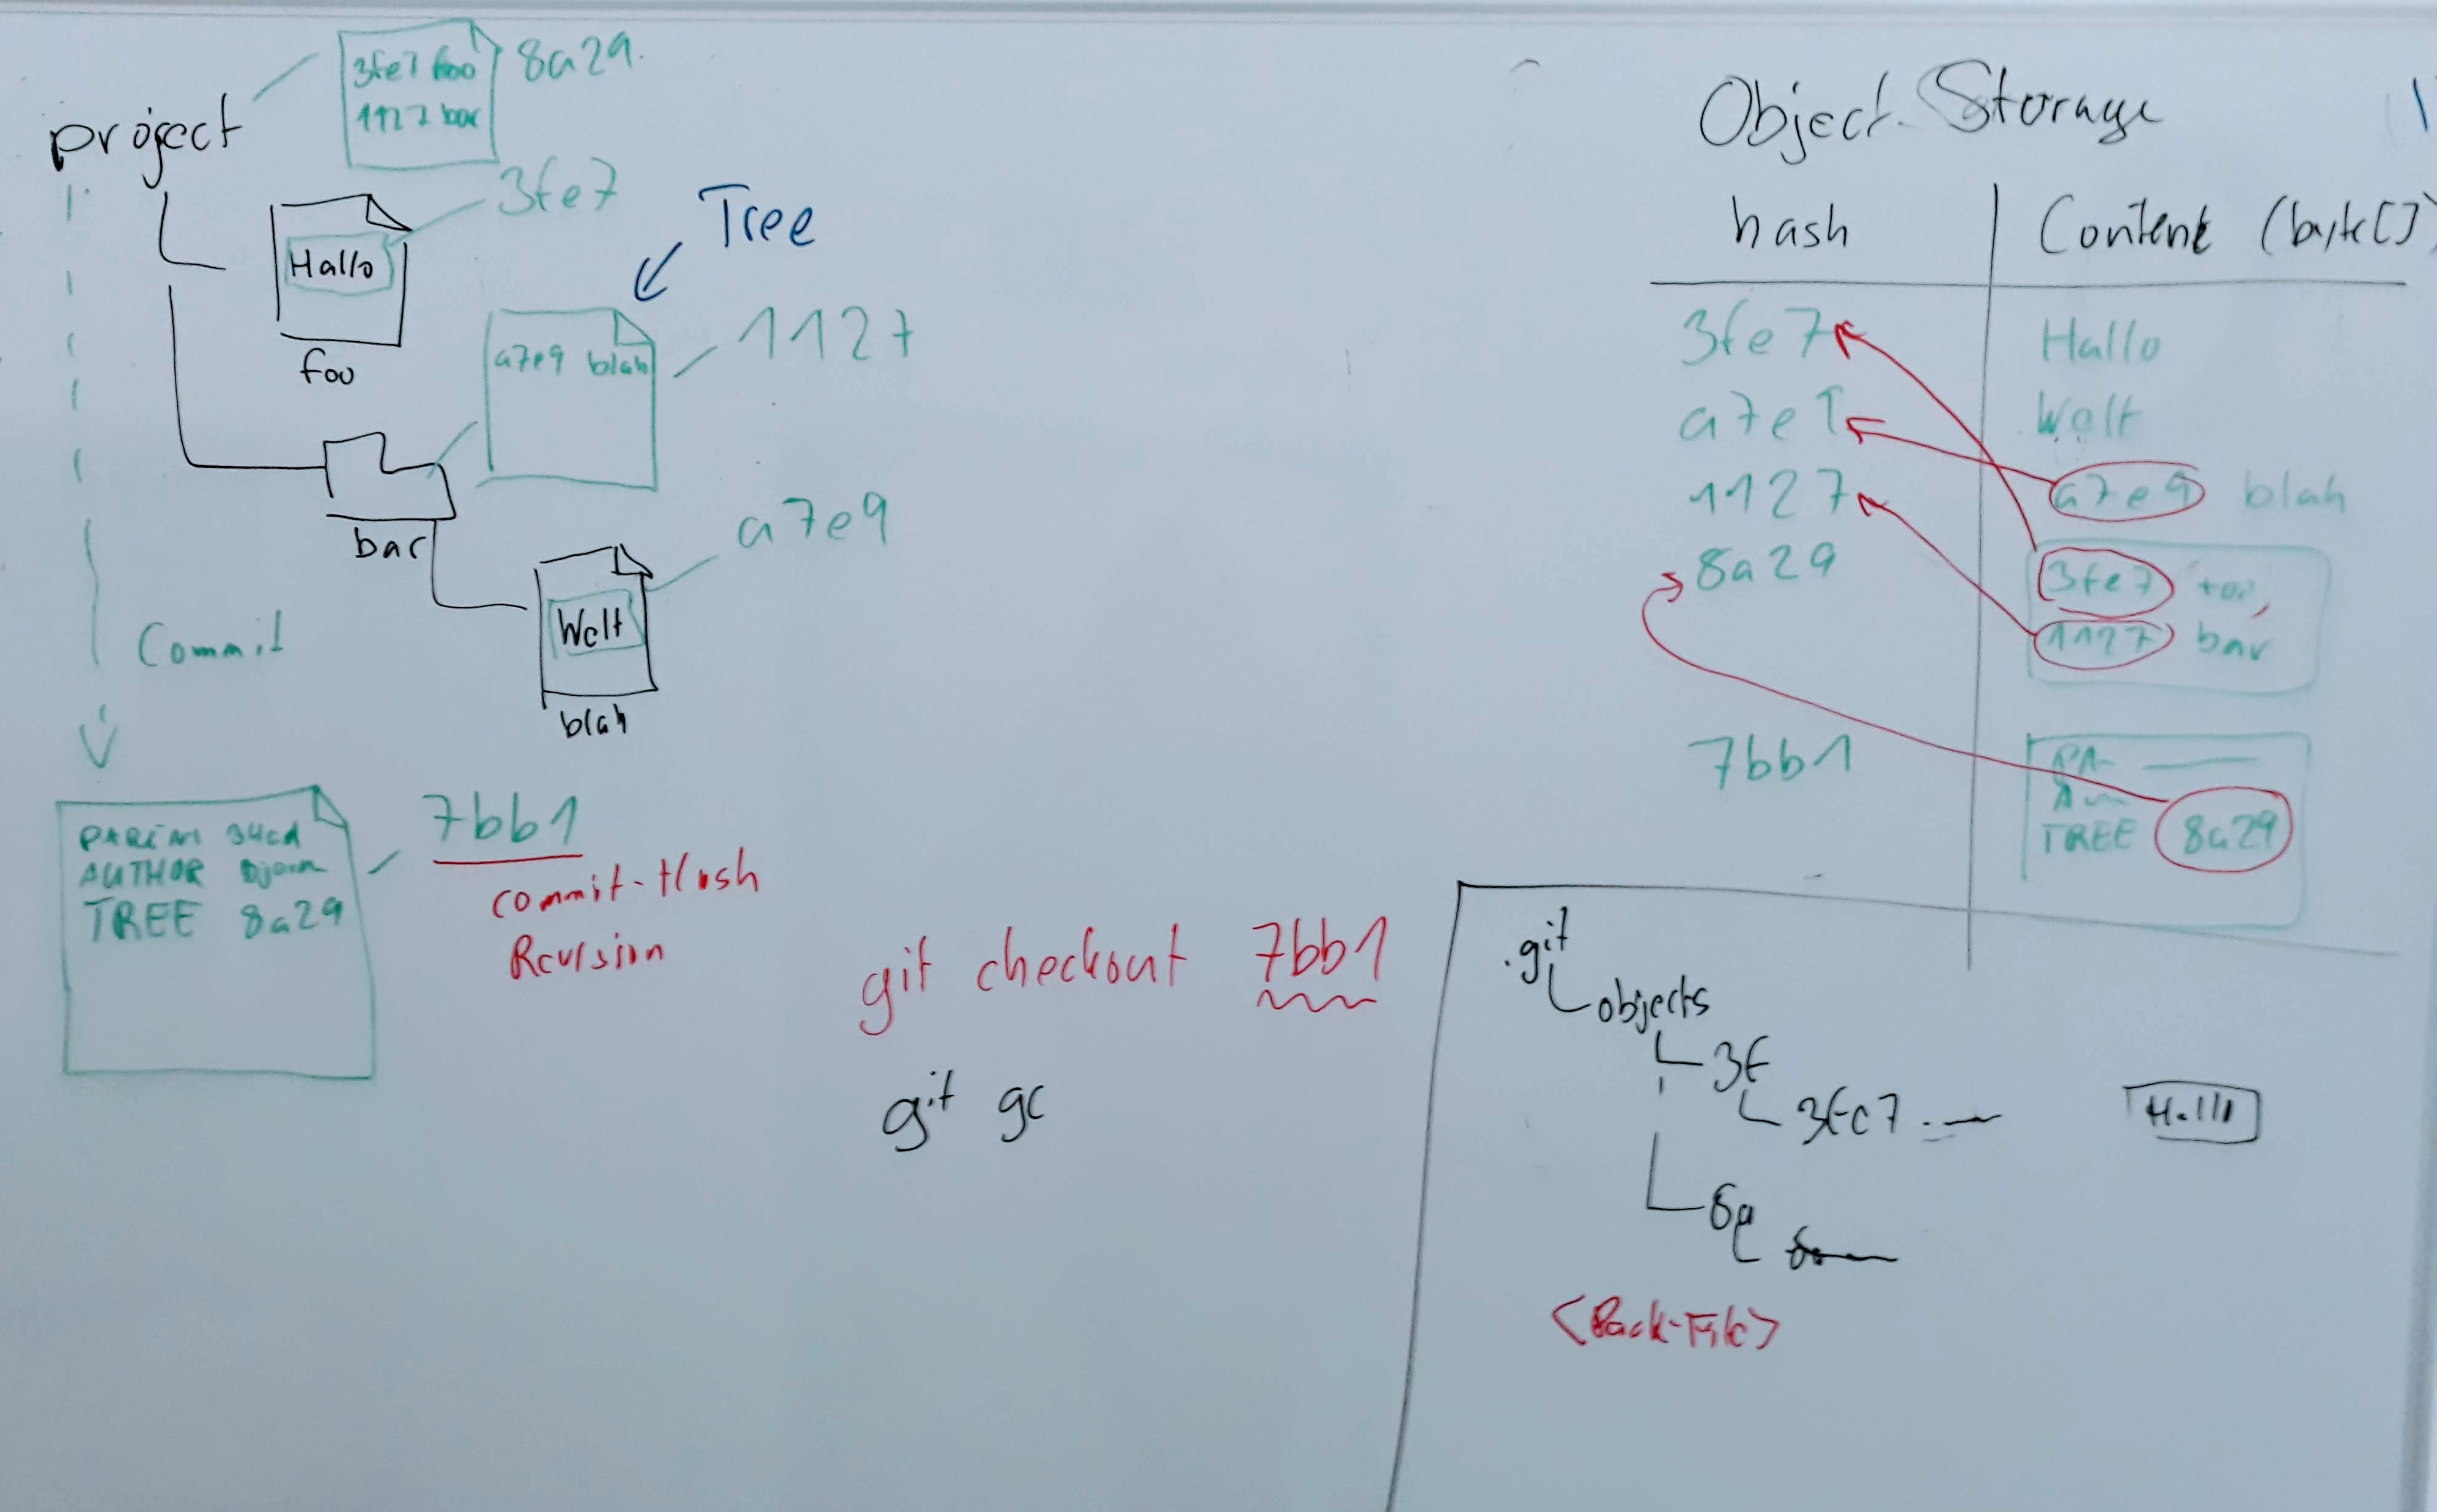 3fe7 foo
1127 bar
8a29
project
3fe7
Hallo
foo
Tree
a7e9 blah
1127
bar
a7e9
Welt
blah
Commit
PARENT 34cd
AUTHOR Bjørn
TREE 8a29
7bb1
commit-Hash
Revision
git checkout 7bb1
git gc
Object-Storage
hash Content (byte[])
3fe7 Hallo
a7e9 Welt
1127 a7e9 blah
8a29 3fe7 foo,
1127 bar
7bb1 PA
A
TREE 8a29
.git
objects
3f
3fe7
Hallo
8a
<Pack-File>